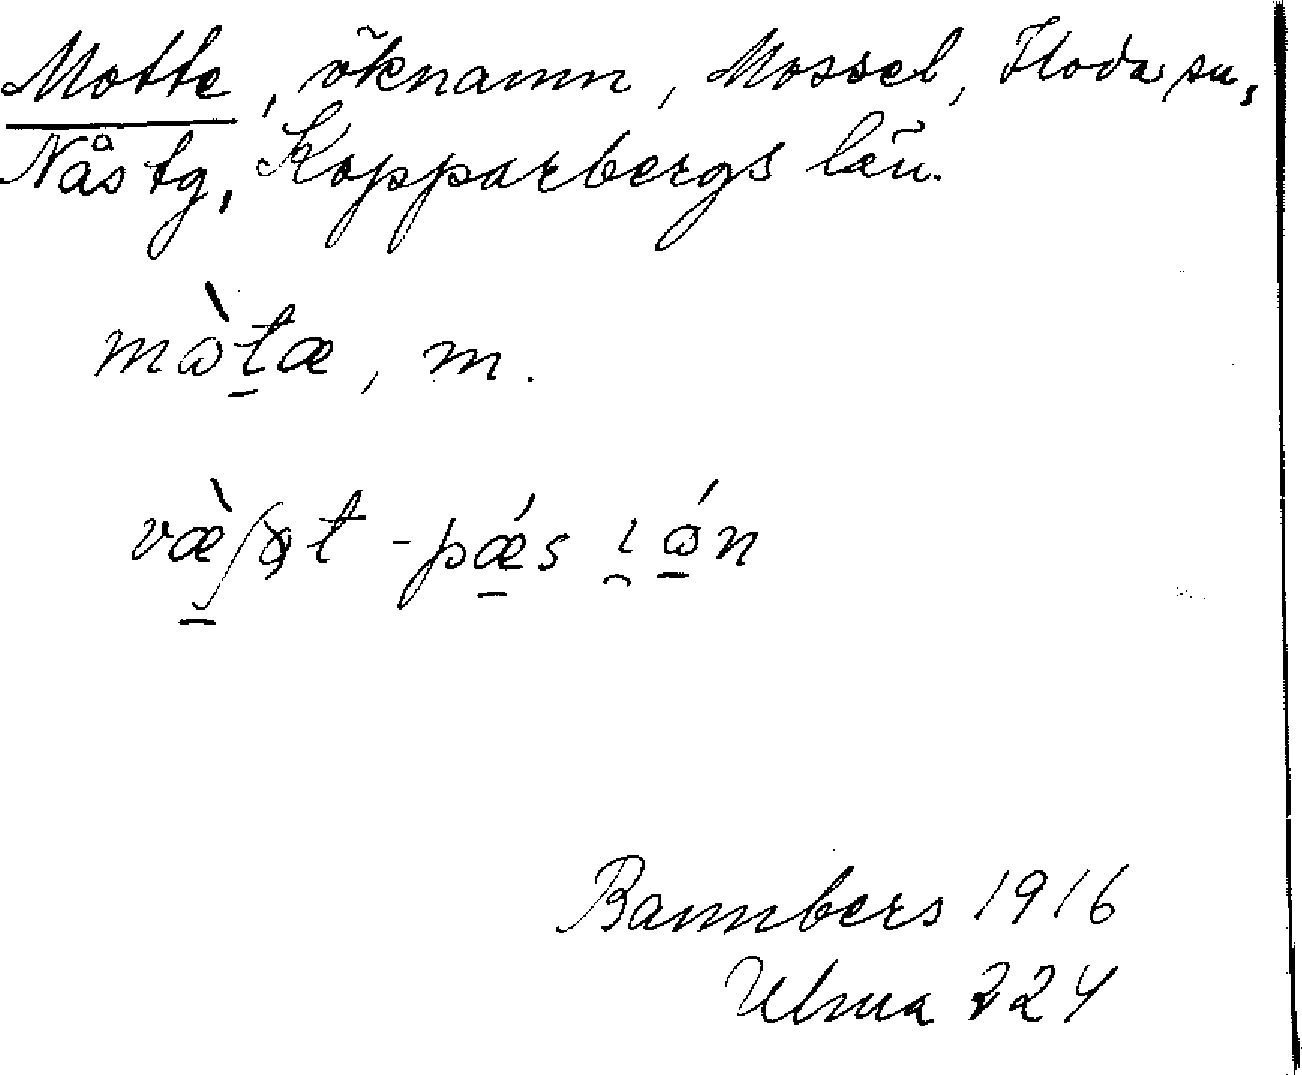 Motte, öknamn, Mossel, Floda sn,
Nås tg, Kopparbergs län.
mὼtæ, m.
-pǽs
Bannbers 1916
Ulma 224